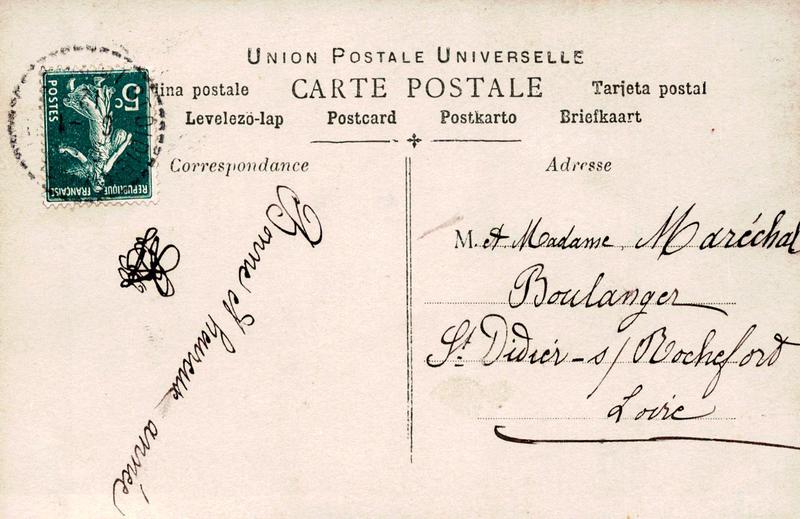 UNION POSTALE UNIVERSELLE
lina postale CARTE POSTALE Tarjeta postal
Levelező-lap Postcard Postkarto Briefkaart
Correspondance
Adresse
5c
POSTES
REPUBLIQUE FRANÇAISE
Bonne et heureuse année
M. et Madame Maréchal
Boulanger
St Didier-s/Rochefort
Loire